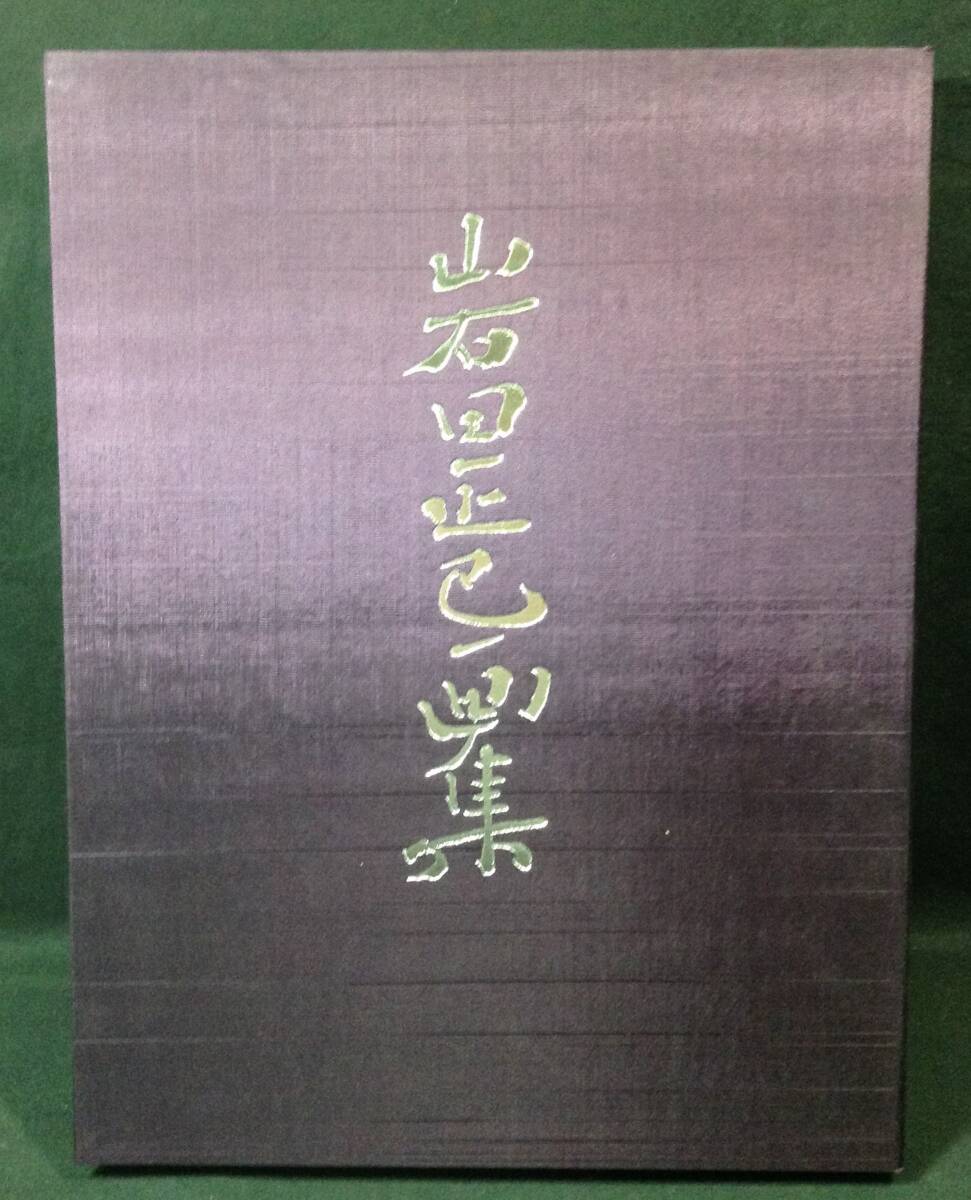 岩田正巳画集